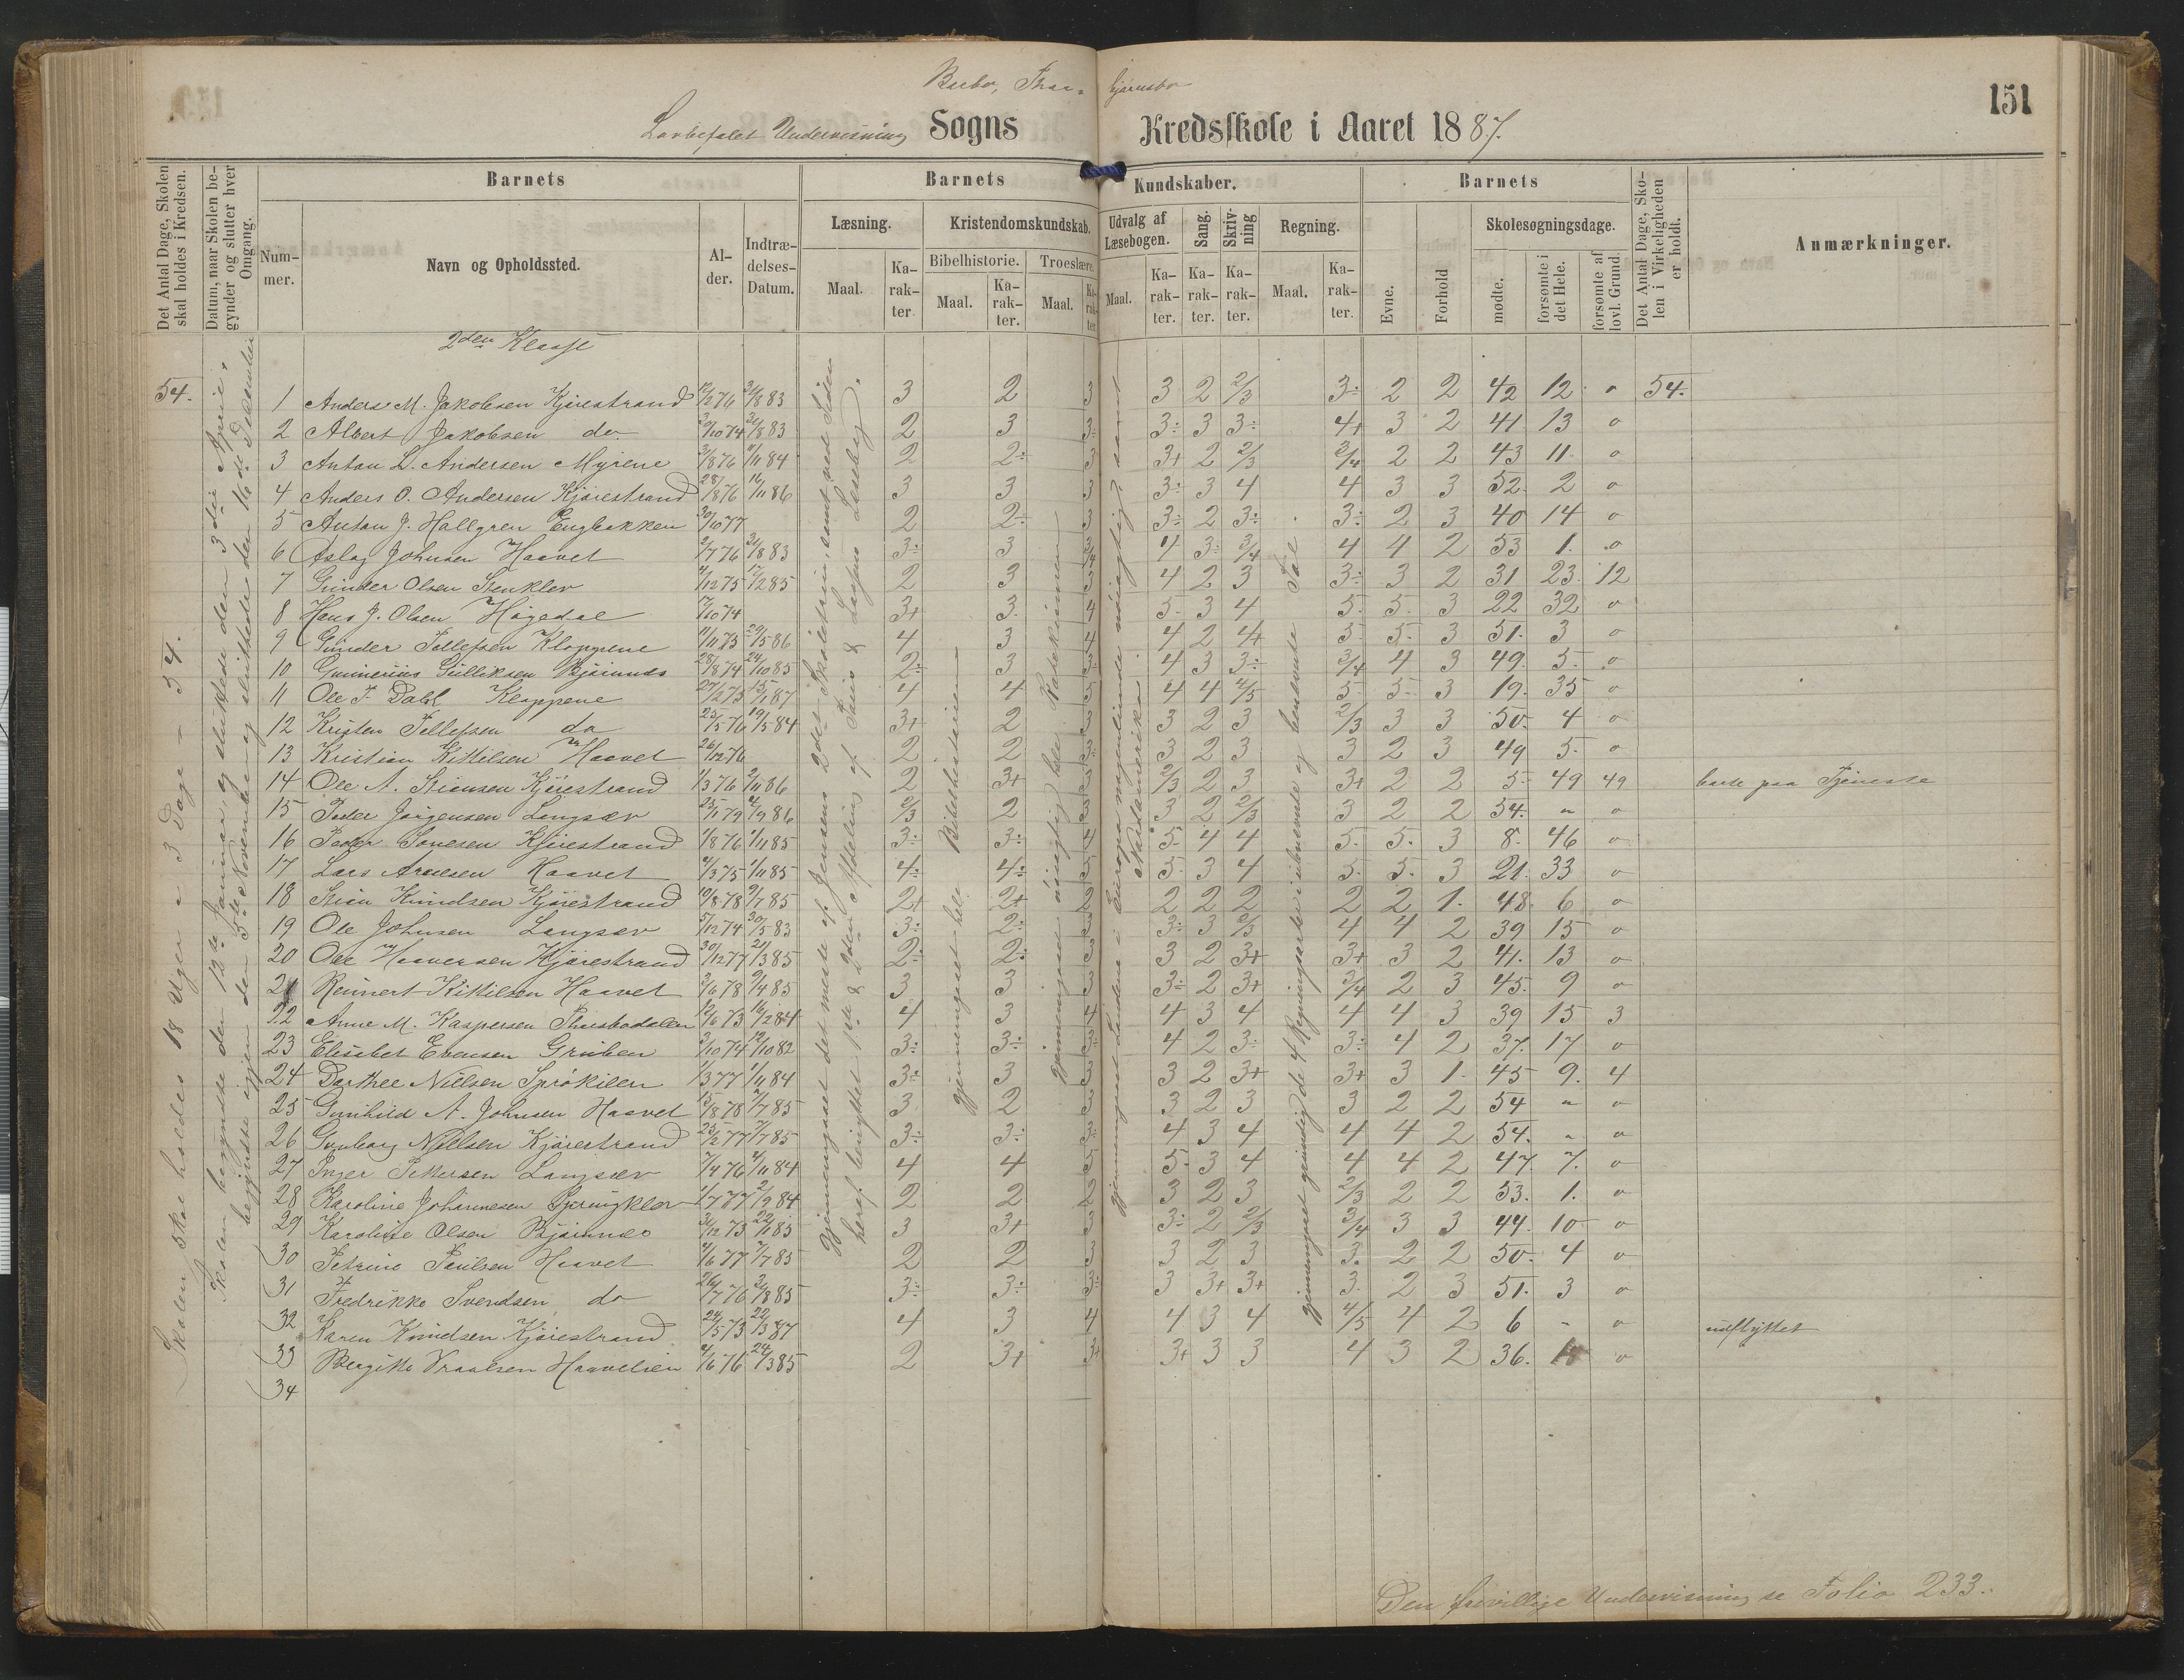 Barbo, Thor- bjørnsbo
151
Lovbefalet Undervisning Sogns Kredsskole i Aaret 1887.
Det Antal Dage, Skolen skal holdes i Kredsen.
Datum, naar Skolen begynder og slutter hver Omgang.
Barnets
Nummer.
Navn og Opholdssted.
Alder.
Indtrædelses-Datum.
Barnets Kundskaber.
Læsning.
Maal.
Karakter.
Kristendomskundskab.
Bibelhistorie.
Maal.
Karakter.
Troeslære.
Maal.
Karakter.
Udvalg af Læsebogen.
Maal.
Karakter.
Sang.
Karakter.
Skrivning
Karakter.
Regning.
Maal.
Karakter.
Barnets
Evne.
Forhold
Skolesøgningsdage.
mødte.
forsømte i det Hele.
forsømte af lovl. Grund.
Det Antal Dage, Skolen i Virkeligheden er holdt.
Anmærkninger.
2den Klasse
54.
Skolen skal holdes 18 Uger a 3 Dage - 54.
Skolen begyndte den 13de Januar og sluttede den 3die April.
begyndte igjen den 5te November og sluttede den 16de December
gjennemgaaet det meste af Jensens 2det Skoletrin, samt ved Siden
heraf benyttet 1ste & 2den Afdeling af Paus & Lassens Læsebog.
gjennemgaaet hele Bibelhistorien
gjennemgaaet nøiagtig hele Katekismen
gjennemgaaet Landene i Europa nogenlunde nøiagtig, samt
Nordamerika
gjennemgaaet grundig de 4 Regningsarter i ubenævnte og benævnte Tal.
1 Anders M. Jakobsen Kjørestrand 12/2 76 31/8 83 3 2 3 3 2 2/3 3÷ 2 2 42 12 o 54.
2 Albert Jakobsen do. 3/10 74 31/8 83 2 3 3÷ 3÷ 3 3÷ 4+ 3 2 41 13 o
3 Anton L. Andersen Myrene 3/8 76 1/11 84 2 2÷ 3 3+ 2 2/3 3/4 2 2 43 11 o
4 Anders O. Andersen Kjørestrand 28/8 76 16/11 86 3 3 3 3÷ 3 4 4 3 3 52 2 o
5 Anton J. Hallgren Engbakken 30/10 77 2 2÷ 3 3÷ 2 3÷ 3÷ 2 3 40 14 o
6 Aslag Johnsen Haavet 2/7 76 31/8 83 3÷ 3 3/4 4 3÷ 3/4 4 4 2 53 1. o
7 Gunder Olsen Stenklev 4/12 75 17/2 85 2 3 3 4 2 3 3÷ 3 2 31 23 12
8 Hans J. Olsen Høgedal 7/10 74 3+ 3 4 5 3 4 5 5 3 22 32 o
9 Gunder Tellefsen Kloppene 11/11 73 29/5 86 4 3 4 4 2 4+ 5 5 3 51. 3 o
10 Gunnerius Gulliksen Bjørnnes 28/8 74 24/10 85 2÷ 3 3÷ 4 3 3÷ 3/4 4 3 49. 5 o
11 Ole F. Dahl Kloppene 27/2 75 15/1 87 4 4 5 4 4 4/5 5 5 3 19. 35 o
12 Kristen Tellefsen do 25/5 76 19/5 84 3+ 2 3 3 2 3 2/3 3 3 50. 4 o
13 Kristian Kittilsen Haavet 26/12 76 2 2 3÷ 3 2 3 3 2 3 49 5 o
14 Ole A. Stiansen Kjørestrand 1/3 76 2/11 86 2 3+ 3 2/3 2 3 3+ 2 2 5 49 49 borte paa Tjeneste
15 Peder Jørgensen Langsæv 25/1 79 4/9 86 2/3 2 3 3 2 2/3 3 2 2 54. " o
16 Peder Tonesen Kjørestrand 1/8 76 1/11 85 3÷ 3÷ 4 5 4 4 5. 5. 3 8. 46 o
17 Lars Arnesen Haavet 4/3 75 1/11 85 4÷ 4÷ 5 5 3 4 5. 5. 3 21. 33 o
18 Stian Knudsen Kjørestrand 10/8 78 9/7 85 2+ 2+ 2 2 2 2 2 2 1. 48. 6 o
19 Ole Johnsen Langsæv 5/12 74 30/5 83 3÷ 2÷ 3 3÷ 3 2/3 4 4 2 39 15 o
20 Ole Haaversen Kjørestrand 30/12 77 21/3 85 2÷ 2÷ 3 3 2 3+ 3+ 3 2 41. 13 o
21 Reinert Kittilsen Haavet 2/6 78 9/4 85 3 3 3 3÷ 2 3+ 3/4 2 3 45. 9 o
22 Anne M. Kaspersen Thusbodalen 12/6 73 16/2 84 4 3 4 4 3 4 4 4 3 39 15 3
23 Elisabet Evensen Gruben 3/10 74 12/10 82 3÷ 3÷ 3÷ 4 2 3÷ 3÷ 4 2 37. 17 o
24 Dorthee Nilsen Sprøkilen 1/3 77 1/11 84 3÷ 3 3 3 2 3+ 3+ 3 1. 45 9. 4
25 Gunhild A. Johnsen Haavet 15/8 78 7/7 85 3 2 3 3 2 3 3 2 2 54 " o
26 Gunborg Nielsen Kjørestrand 25/2 77 7/7 85 3÷ 3÷ 3÷ 4 3 4 4 4 2 54. " o
27 Inger Pettersen Langsæv 7/4 76 4/11 84 4 4 5 5 3 4 4 4 2 47. 7. o
28 Karoline Johannesen Springklev 1/7 77 2/9 84 2 2 2 3 2 3 2/3 2 2 53. 1. o
29 Karoline Olsen Bjørnnes 31/12 73 22/1 85 3 3+ 3 3÷ 2 2/3 3/4 3 3 44. 10 o
30 Petrine Paulsen Haavet 4/6 77 7/7 85 2 2 3 3 2 3 3. 2 2 50. 4 o
31 Fredrikke Svendsen do 26/7 76 31/8 85 3÷ 3÷ 3÷ 3 3+ 3+ 3. 2 3 51. 3 o
32 Karen Knudsen Kjørestrand 24/5 73 22/3 87 4 3 4 4 3 4 4/5 4 2 6 - o udflyttet
33 Bergitte Vraalsen Haavelien 4/6 76 24/3 85 2 3+ 3+ 3+ 3 3 4 3 2 36. o
34
Den frivillige Undervisning se Folio 233.